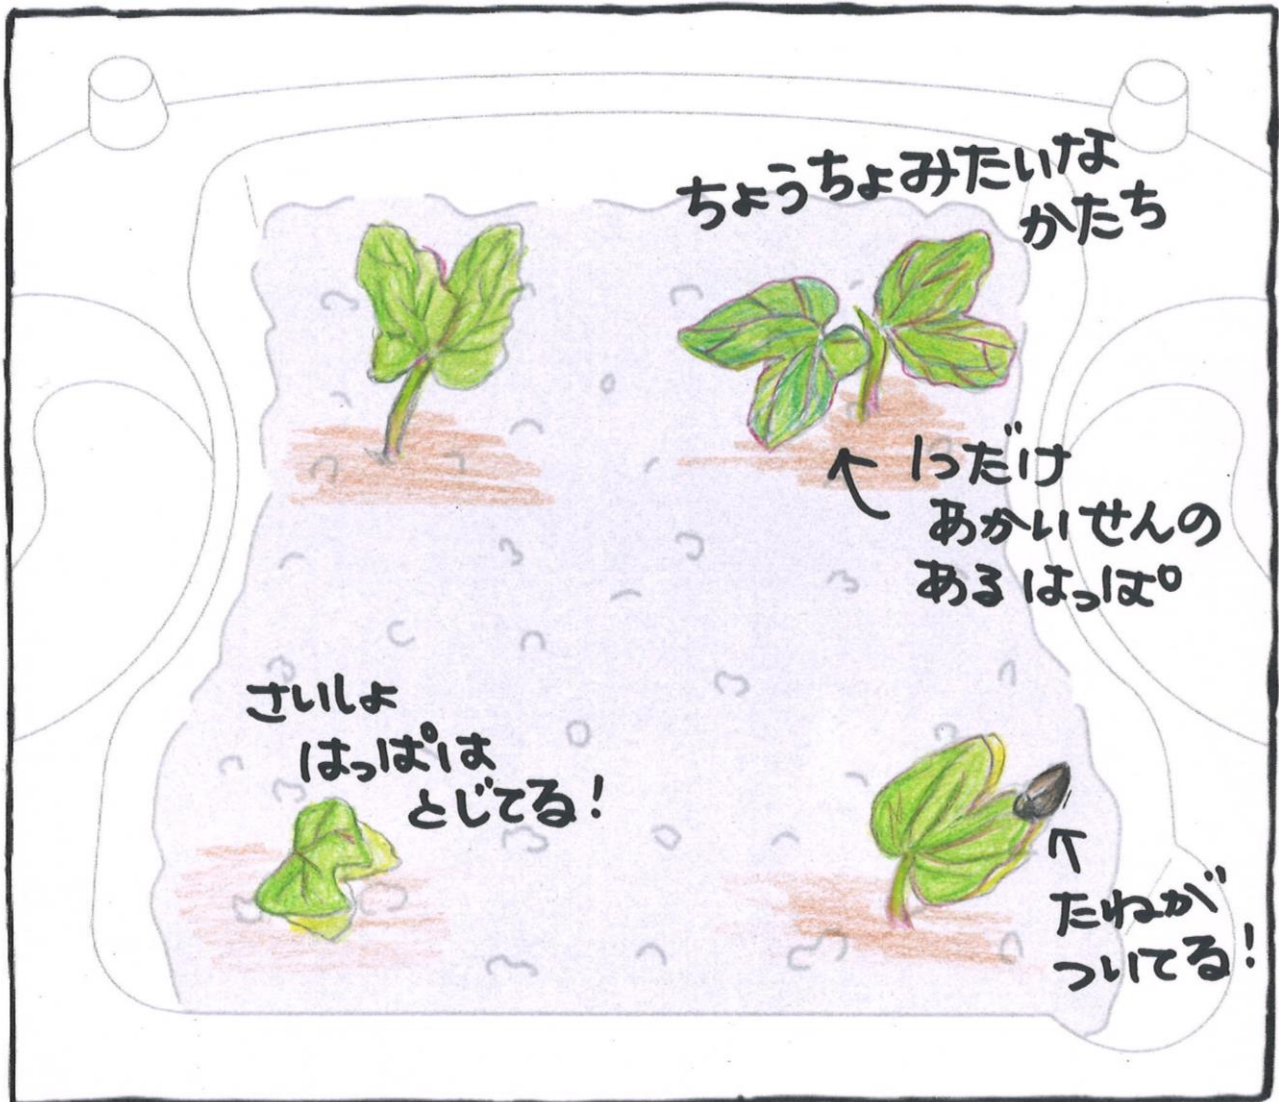 ちょうちょみたいな
かたち
1つだけ
あかいせんの
あるはっぱ
さいしょ
はっぱは
とじてる!
たねが
ついてる!